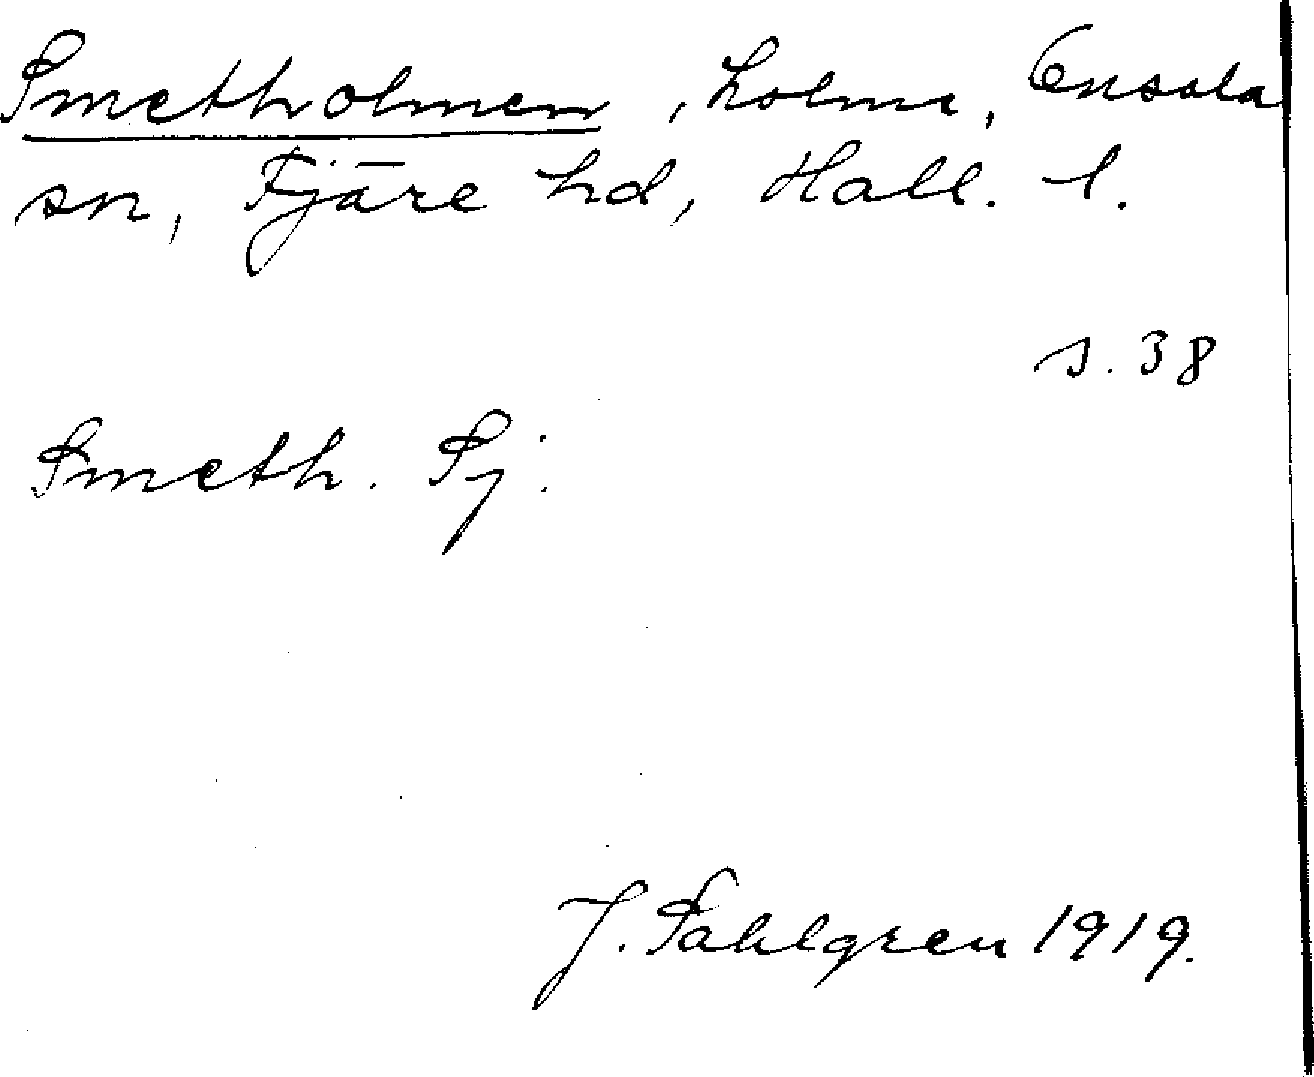 Smetholmen, holme, Onsala
sn, Fjäre hd, Hall. l.
s. 38
Smeth. Sj:
J. Sahlgren 1919.